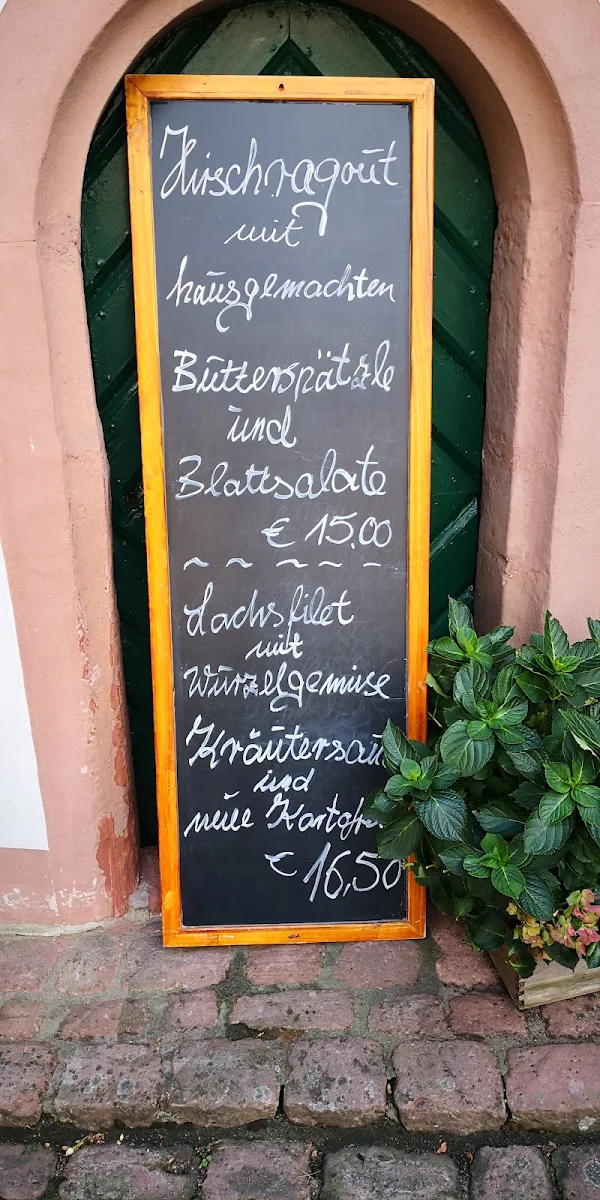 Hirschragout
mit
hausgemachten
Butterspätzle
und
Blattsalate
€ 15.00
~ ~ ~ ~ -
Lachsfilet
mit
Wurzelgemüse
Kräutersau
und
neue Kartoffe
€ 16,50